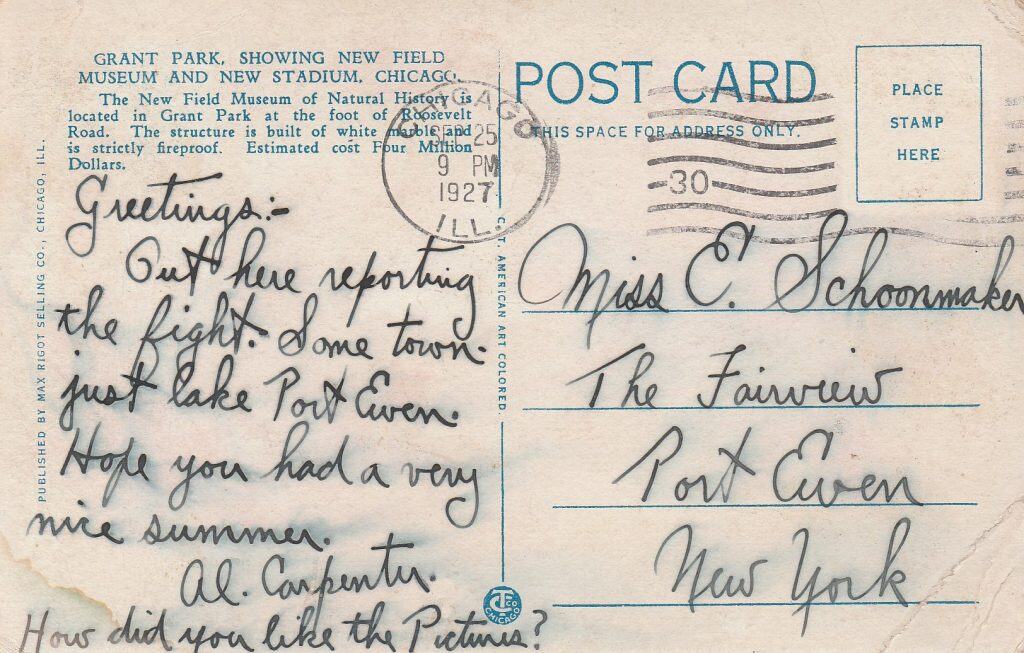 GRANT PARK, SHOWING NEW FIELD
MUSEUM AND NEW STADIUM, CHICAGO.
The New Field Museum of Natural History is
located in Grant Park at the foot of Roosevelt
Road. The structure is built of white marble and
is strictly fireproof. Estimated cost Four Million
Dollars.
PUBLISHED BY MAX RIGOT SELLING CO., CHICAGO, ILL.
Greetings:-
Out here reporting
the fight. Some town.
just lake Port Ewen.
Hope you had a very
nice summer.
Al. Carpenter.
How did you like the Pictures?
CHICAGO
SEP 25
9 PM
1927
ILL.
C. T. AMERICAN ART COLORED.
CT CO. CHICAGO
POST CARD
THIS SPACE FOR ADDRESS ONLY.
30
PLACE
STAMP
HERE
Miss E. Schoonmaker
The Fairview
Port Ewen
New York